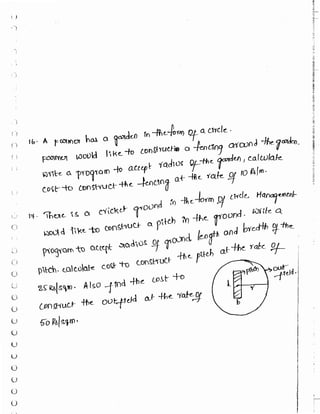 16. A farmer has a garden in the form of a circle.
farmer would like to construction a fencing around the garden.
Write a program to accept radius of the garden, calculate
cost to construct the fencing at the rate of 10 Rs/m.
17. There is a cricket ground in the form of circle. Management
would like to construct a pitch in the ground. Write a
program to accept radius of ground length and breadth of the
pitch. calculate cost to construct the pitch at the rate of
25 Rs/sqm. Also find the cost to
construct the outfield at the rate of
50 Rs/sqm.
pitch
out-
field.
l
r
b